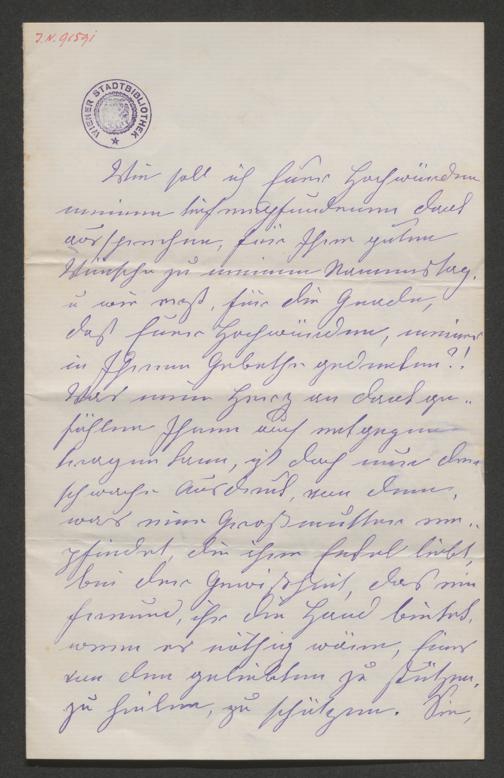 J.N. 91591
WIENER STADTBIBLIOTHEK
Wie soll ich Euer Hochwürden
meinen tiefempfundenen Dank
aussprechen, für Ihre guten
Wünsche zu meinem Namenstag,
u wie erst, für die Gnade,
daß Euer Hochwürden, meiner
in Ihrem Gebethe gedenken?!
Was mein Herz an Dankge-
fühlen Ihnen auch entgegen
tragen kann, ist doch nur der
schwache Ausdruk, von dem,
was eine Großmutter em-
pfindet, die ihre Enkel liebt,
bei der Gewißheit, daß ein
Freund, ihr die Hand bietet,
wenn es nöthig wäre, Einen
von den geliebten zu stützen,
zu heilen, zu schützen. Sie,